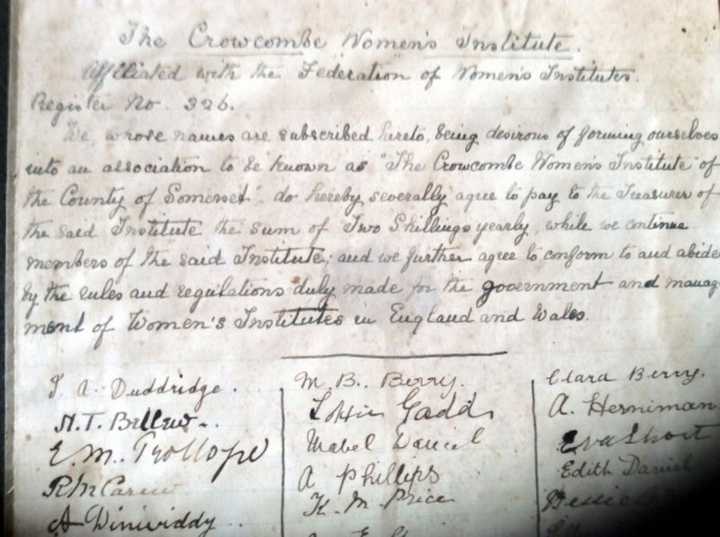 The Crowcombe Women's Institute.
Affiliated with the Federation of Women's Institutes.
Register No. 326.
We, whose names are subscribed hereto, being desirous of forming ourselves
into an association to be known as "The Crowcombe Women's Institute" of
the County of Somerset", do hereby severally agree to pay to the Treasurer of
the said Institute the sum of Two Shillings yearly, while we continue
members of the said Institute; and we further agree to conform to and abide
by the rules and regulations duly made for the government and manag
ment of Women's Institutes in England and Wales.
A. Duddridge.
H. T. Bellew.
E. M. Trollope
R M Carew
A Diniwiddy
M. B. Berry.
Gadd
Mabel Daniel
A Phillips
K. M. Price
Clara Berry.
A. Herniman
Eva Short
Edith Daniel
Bessie